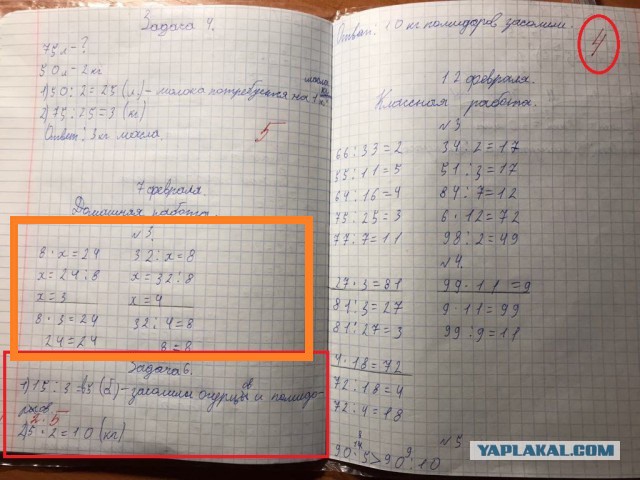 Задача 4.
75 л - ?
50 л - 2 кг
1) 50 : 2 = 25 (л) - молока потребуется на 1 кг масла
2) 75 : 25 = 3 (кг)
Ответ: 3 кг масла.
5
7 февраля
Домашняя работа.
№3.
8 · x = 24 32 : x = 8
x = 24 : 8 x = 32 : 8
x = 3 x = 4
8 · 3 = 24 32 : 4 = 8
24 = 24 8 = 8
Задача 6.
1) 15 : 3 = 5 (б) - засолили огурцов и помидо-
ров
2 · 5
2) 5 · 2 = 10 (кг)
Ответ: 10 кг помидоров засолили.
4
12 февраля.
Классная работа.
№3
66 : 33 = 2 34 : 2 = 17
55 : 11 = 5 51 : 3 = 17
64 : 16 = 4 84 : 7 = 12
75 : 25 = 3 6 · 12 = 72
77 : 7 = 11 98 : 2 = 49
№4.
27 · 3 = 81 99 · 11 = 9
81 : 3 = 27 9 · 11 = 99
81 : 27 = 3 99 : 9 = 11
4 · 18 = 72
72 : 18 = 4
72 : 4 = 18
№5
18 9
90 : 5 > 90 : 10
YAPLAKAL.COM